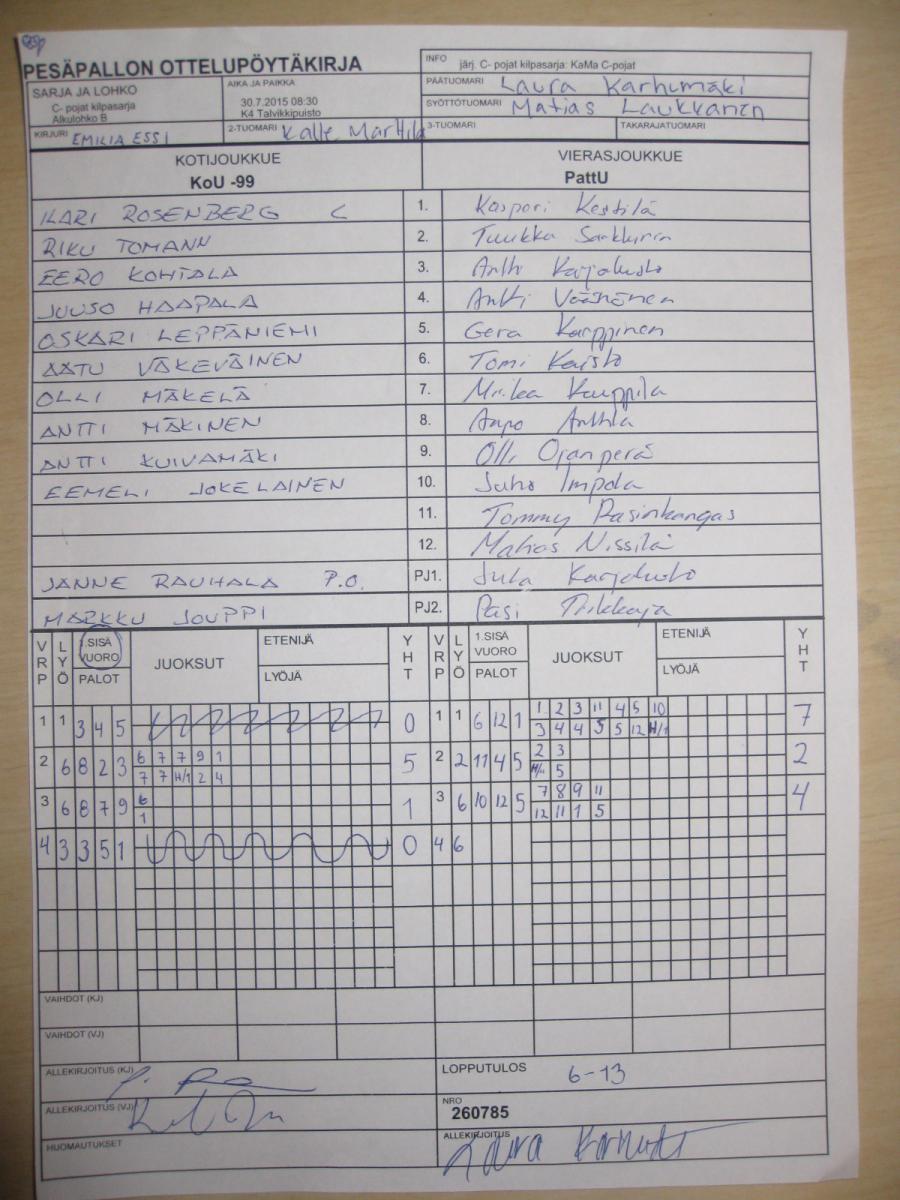 PESÄPALLON OTTELUPÖYTÄKIRJA
INFO järj. C- pojat kilpasarja: KaMa C-pojat
SARJA JA LOHKO
C- pojat kilpasarja
Alkulohko B
AIKA JA PAIKKA
30.7.2015 08:30
K4 Talvikkipuisto
PÄÄTUOMARI Laura Karhumäki
SYÖTTÖTUOMARI Matias Laukkanen
KIRJURI EMILIA ESSI
2-TUOMARI Kalle Marttila
3-TUOMARI
TAKARAJATUOMARI
KOTIJOUKKUE VIERASJOUKKUE
KoU -99 PattU
ILARI ROSENBERG C 1. Kaspari Kestilä
RIKU TOMANN 2. Tuukka
EERO KOHTALA 3. Antti Karjaluoto
JUUSO HAAPALA 4. Antti Väänänen
OSKARI LEPPÄNIEMI 5. Gera Karppinen
AATU VÄKEVÄINEN 6. Tomi Kaisto
OLLI MÄKELÄ 7. Miika Kauppila
ANTTI MÄKINEN 8. Anttila
ANTTI KUIVAMÄKI 9. Olli Ojanperä
EEMELI JOKELAINEN 10. Juho Impola
11. Tommy Pasinkangas
12. Matias Nissilä
JANNE RAUHALA P.O. PJ1. Karjaluoto
MARKKU JOUPPI PJ2. Pasi
VRP LYÖ 1.SISÄ VUORO PALOT JUOKSUT ETENIJÄ LYÖJÄ YHT VRP LYÖ 1.SISÄ VUORO PALOT JUOKSUT ETENIJÄ LYÖJÄ YHT
1 1 3 4 5 0 1 1 6 12 1 1 2 3 11 4 5 10 7
3 4 4 5 5 12 H/1
2 6 8 2 3 6 7 7 9 1 5 2 2 11 4 5 2 3 2
7 7 H/1 2 4 5
3 6 8 7 9 6 1 3 6 10 12 5 7 8 9 11 4
1 12 11 1 5
4 3 3 5 1 0 4 6
VAIHDOT (KJ)
VAIHDOT (VJ)
ALLEKIRJOITUS (KJ)
LOPPUTULOS 6-13
ALLEKIRJOITUS (VJ)
NRO
260785
HUOMAUTUKSET
ALLEKIRJOITUS Laura